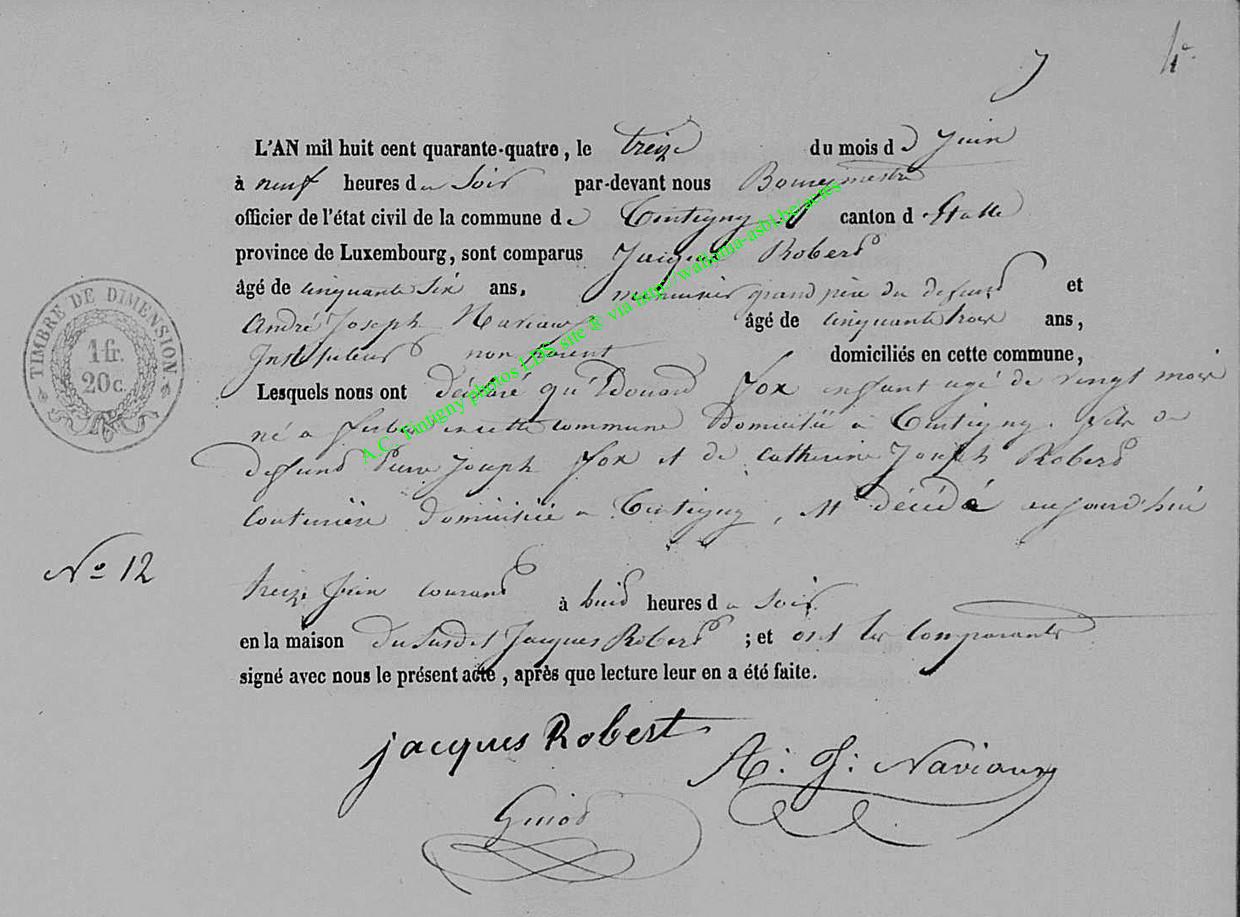 7 4e
L'AN mil huit cent quarante-quatre, le treize du mois de Juin
à neuf heures du Soir par-devant nous Bourgmestre
officier de l'état civil de la commune de Tintigny canton d'Etalle
province de Luxembourg, sont comparus Jacques Robert
âgé de cinquante Six ans, menuisier grand père du defunt et
André Joseph Naviaux âgé de cinquante trois ans,
Instituteur non parent domiciliés en cette commune,
Lesquels nous ont déclaré qu'Edouard Fox enfant agé de vingt mois
né a en cette commune Domicilié a Tintigny. fils de
defunt Pierre Joseph Fox et de Catherine Joseph Robert
Couturière domiciliée a Tintigny, est décédé aujourd'hui
No 12
treize Juin courant à huit heures du Soir
en la maison du Susdit Jacques Robert ; et ont les Comparants
signé avec nous le présent acte, après que lecture leur en a été faite.
jacques Robert
A: J: Naviaux
TIMBRE DE DIMENSION
1 fr.
20 c.
A.C. Tintigny photos LDS site & via http://wallonia-asbl.be/actes